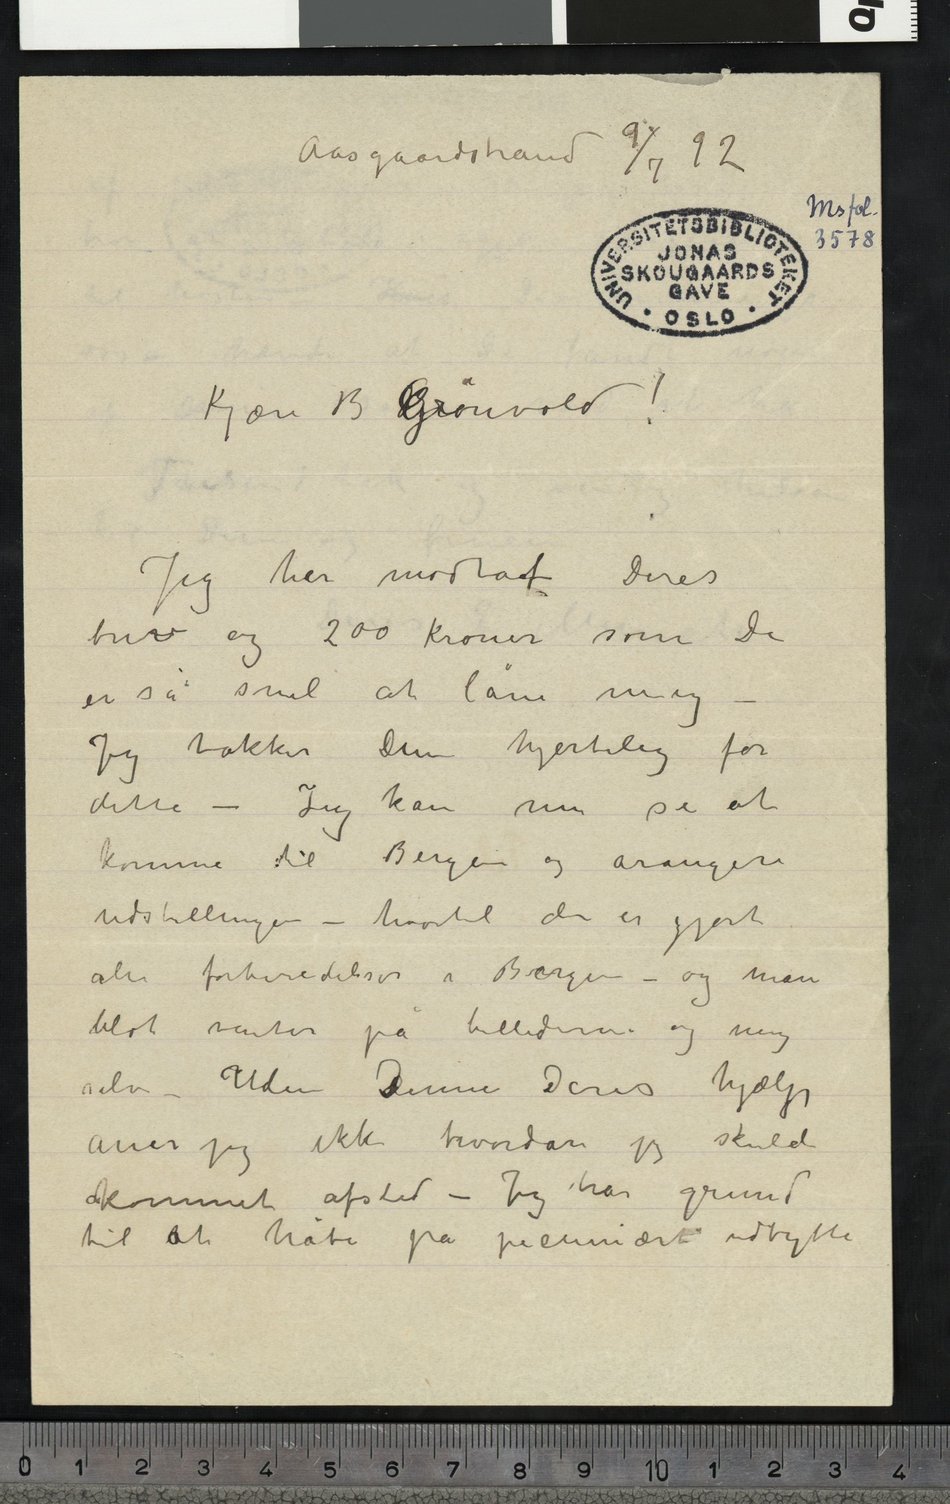 Aasgaardstrand 9/7 92
Ms fol.
3578
UNIVERSITETSBIBLIOTEKET
JONAS
SKOUGAARDS
GAVE
OSLO
Kjære B Grönvold!
Jeg har modtat Deres
brev og 200 kroner som De
er så snil at låne mig –
Jeg takker Dem hjertelig for
dette – Jeg kan nu se at
komme til Bergen og arangere
udstillingen – hvortil der er gjort
alle forberedelser i Bergen – og man
blot venter på billederne og mig
selv – Uden Denne Deres hjælp
aner jeg ikke hvordan jeg skulde
kommet afsted – Jeg har grund
til at håbe på pecuniært udbytte
0 1 2 3 4 5 6 7 8 9 10 1 2 3 4